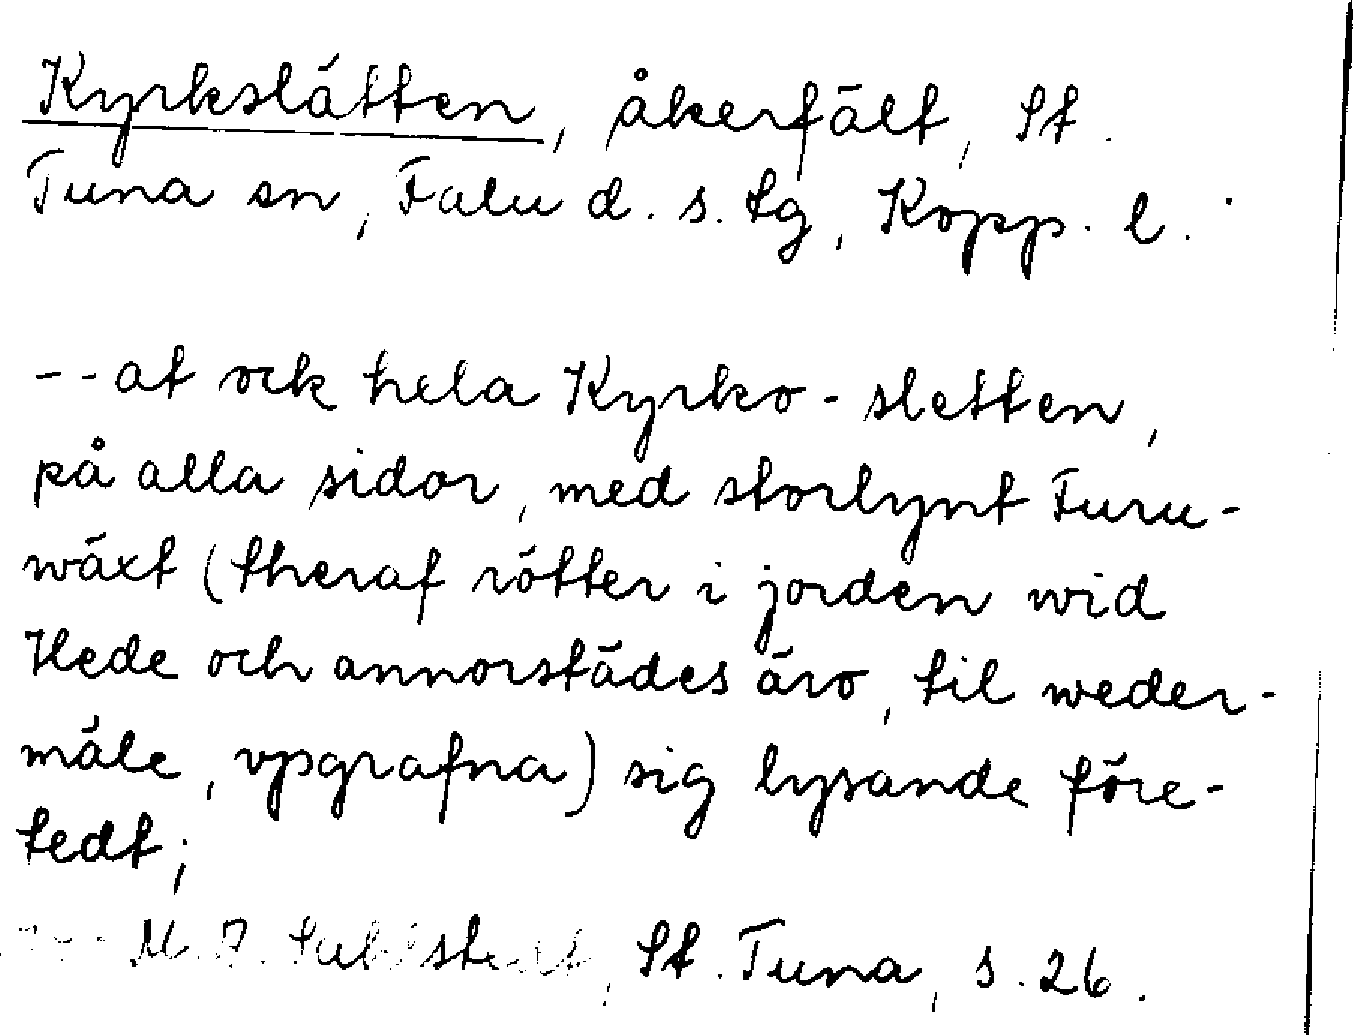 Kyrkslätten, åkerfält, St.
Tuna sn, Falu d. s. tg, Kopp. l.
-- at ock hela Kyrko-sletten,
på alla sidor, med storlynt Furu-
wäxt (theraf rötter i jorden wid
Hede och annorstädes äro, til weder-
mäle, vpgrafna) sig lysande före-
tedt;
St. Tuna, s. 26.